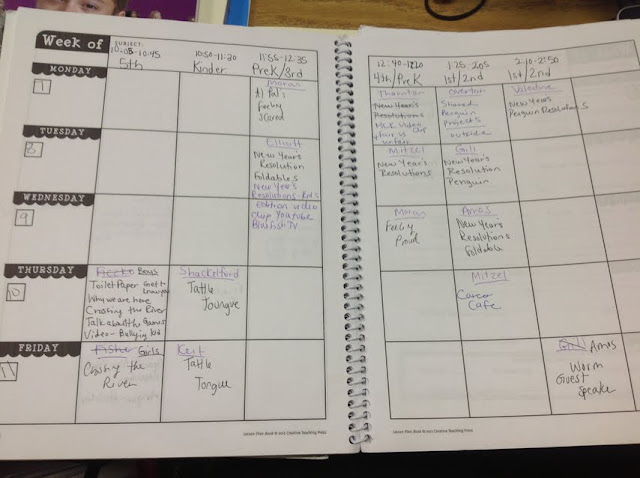 Week of
SUBJECT:
10:05-10:45
5th
10:50-11:20
Kinder
11:55-12:35
PreK/3rd
12:40-1:20
4th/PreK
1:25-2:05
1st/2nd
2:10-2:50
1st/2nd
MONDAY
7
Maras
AI Pals
Feeling
Scared
Thornton
New Year's
Resolutions
MLK Video
Clip
Overton
Shared
Penguin
Projects
outside
Valentine
New Years
Penguin Resolutions
TUESDAY
8
Elliott
New Year's
Resolution
Foldables
New Year's
Resolutions
Mitzel
New Year's
Resolutions
Gill
New Year's
Resolution
Penguin
WEDNESDAY
9
video
clip Youtube
TV
Maras
Feeling
Proud
Amos
New Years
Resolutions
Foldable
THURSDAY
10
Boys
Toilet Paper
Why we are here
Crossing the River
Talk about the Games
Video- Bullying
Shackelford
Tattle
Toungue
Mitzel
Career
Cafe
FRIDAY
11
Girls
Crossing the
River
Keit
Tattle
Tongue
Amos
Worm
Guest
Speake
Lesson Plan Book © 2012 Creative Teaching Press
Lesson Plan Book © 2012 Creative Teaching Press